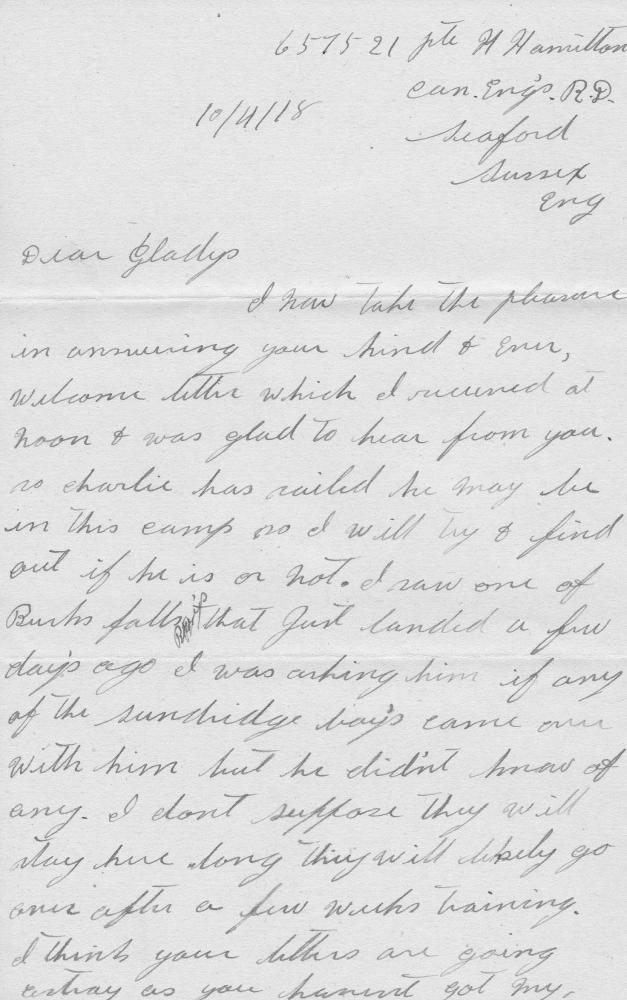 657521 pte H Hamilton
Can. Eng's. R.D.
10/4/18
Seaford
Sussex
Eng
Dear Gladys
I now take the pleasure
in answering your kind & ever,
welcome letter which I received at
noon & was glad to hear from you.
so charlie has sailed he may be
in this camp so I will try & find
out if he is or not. I saw one of
Burks falls boy's that Just landed a few
day's ago I was asking him if any
of the sundridge boy's came over
with him but he did'nt know of
any. I dont suppose they will
stay here long they will likely go
over after a few weeks training.
I think your letters are going
astray as you havent got my,